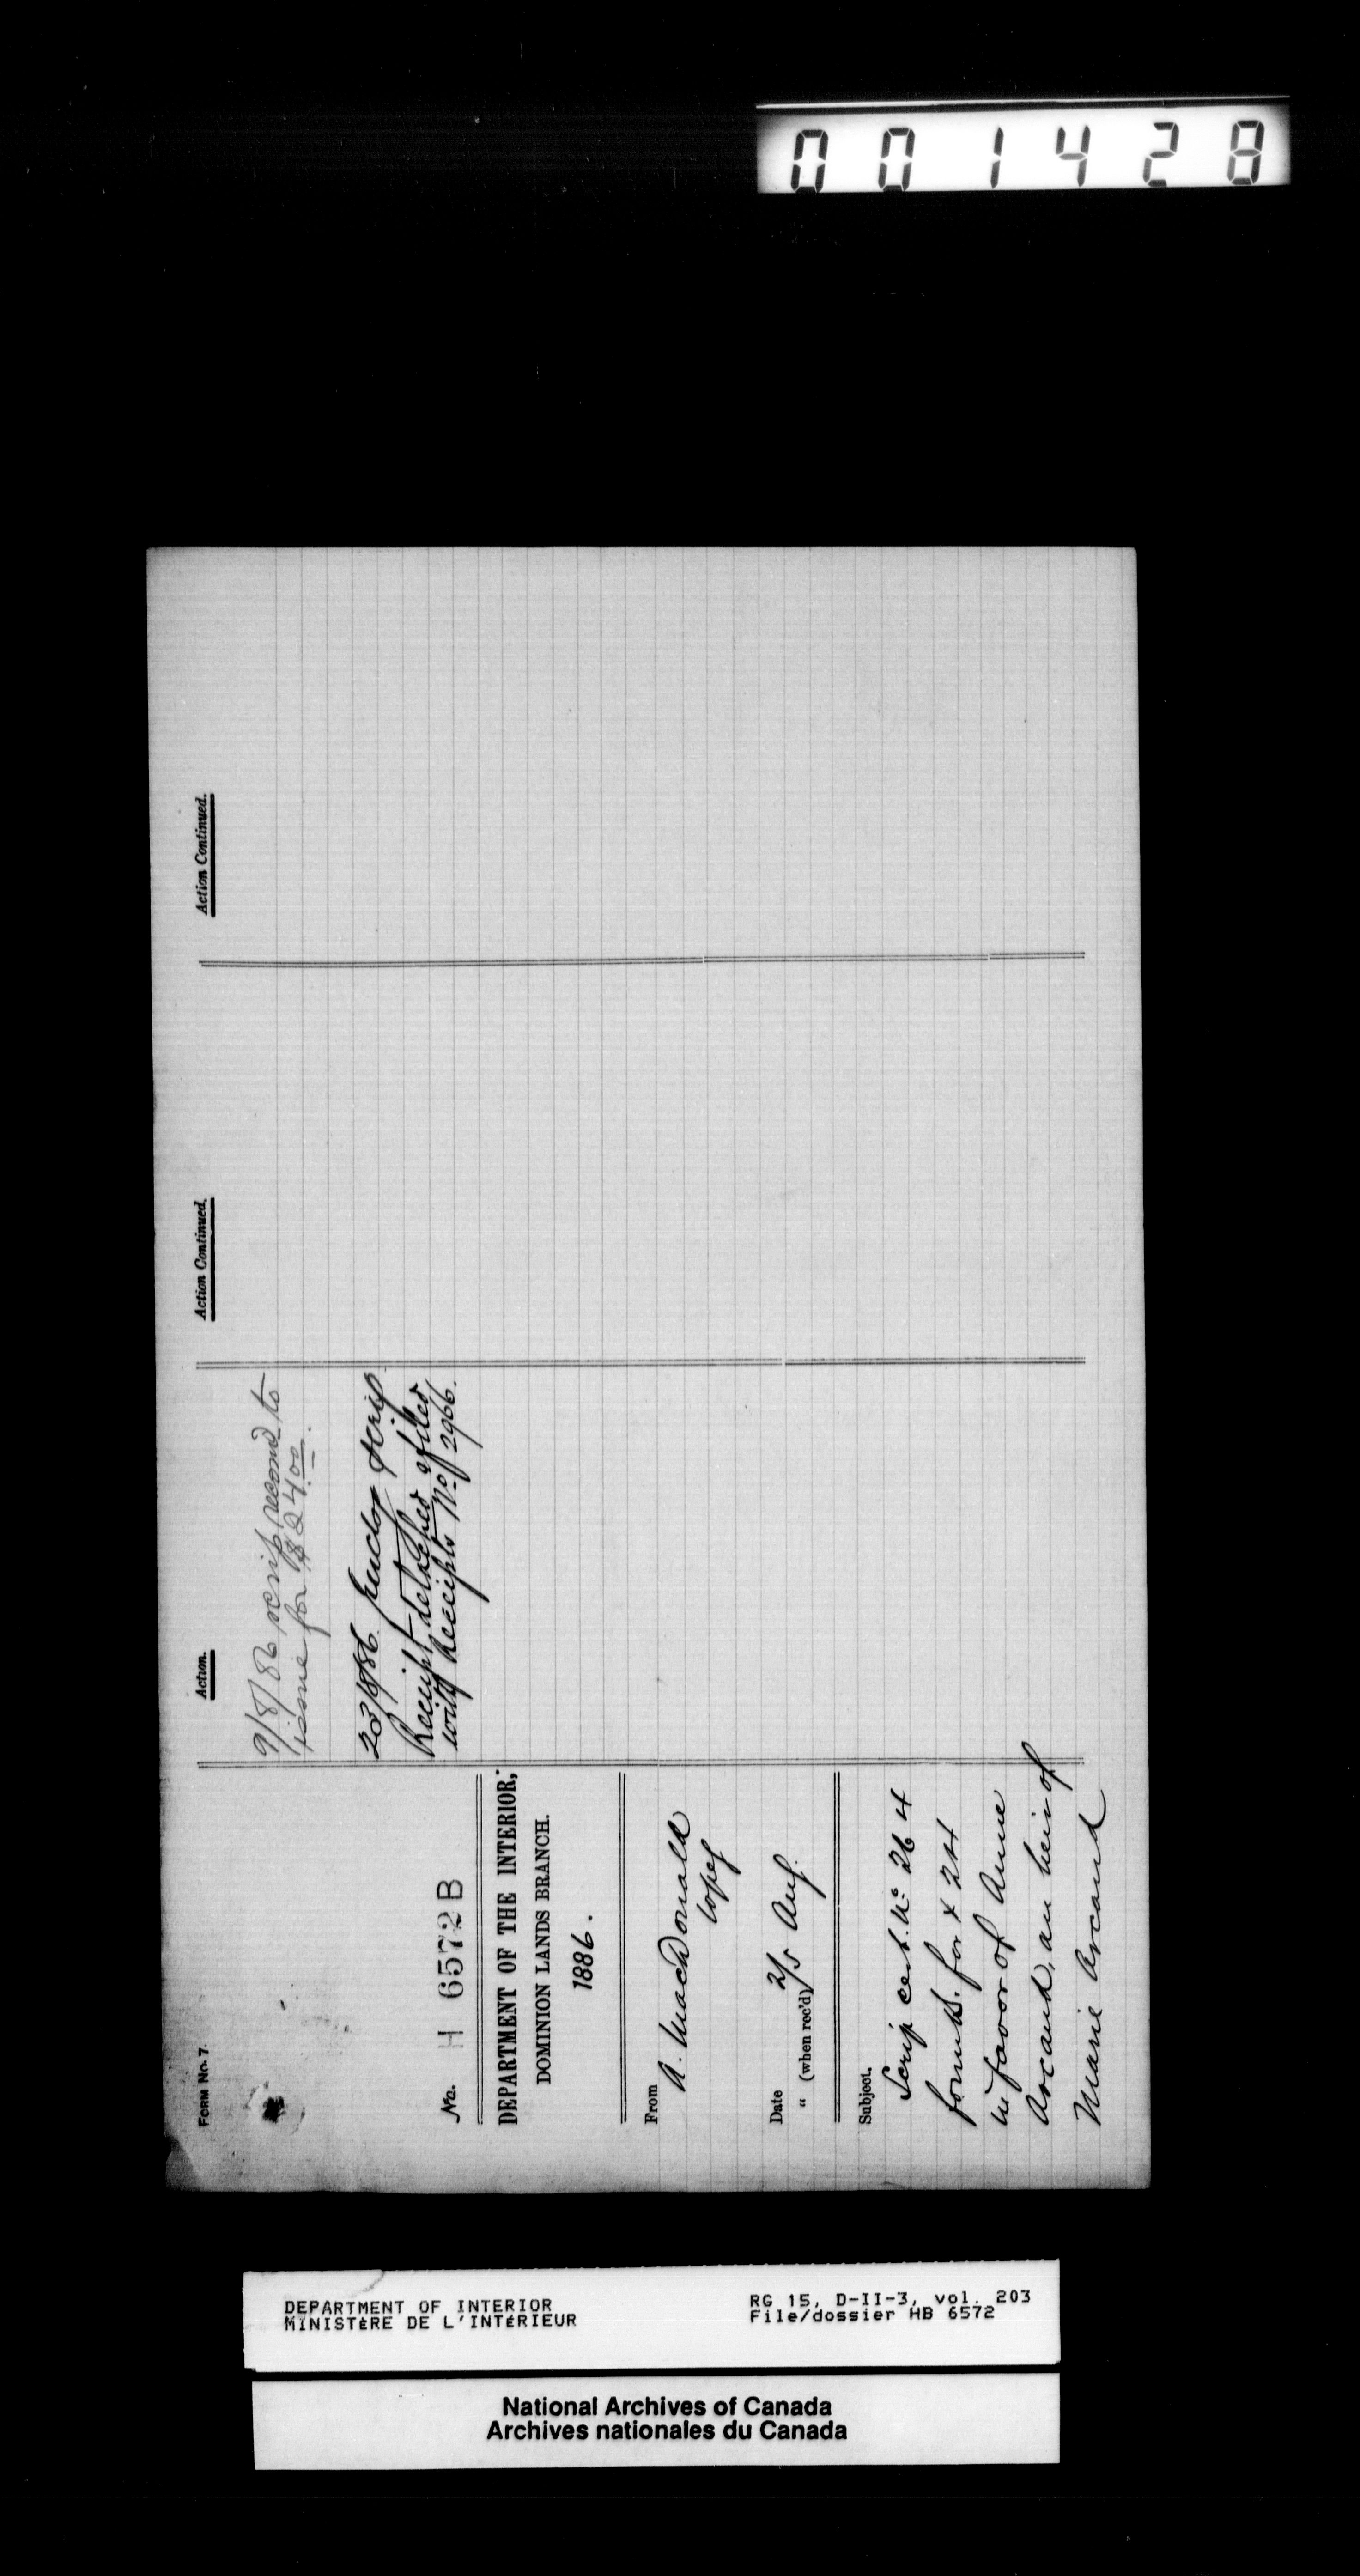 001428
FORM No. 7
No. H 6572 B
DEPARTMENT OF THE INTERIOR,
DOMINION LANDS BRANCH.
1886.
From
A. MacDonald
Date 2/5 Aug.
" (when rec'd)
Subject.
Scrip cert. No 264
form D. for $ 24
in favor of Anne
Arcand, an heir of
Marie Arcand
Action.
9/8/86 scrip record to
issue for $24.00.
23/8/86 scrip
Receipt detached & filed
with Receipts No 2966.
Action Continued.
Action Continued.
DEPARTMENT OF INTERIOR
MINISTÈRE DE L'INTÉRIEUR
RG 15, D-II-3, vol. 203
File/dossier HB 6572
National Archives of Canada
Archives nationales du Canada